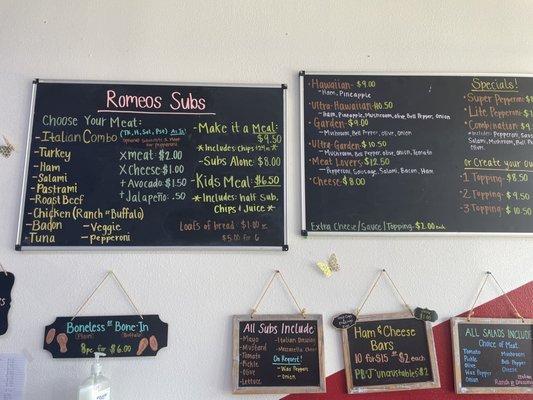 Romeos Subs
Choose Your Meat:
-Italian Combo
-Turkey
-Ham
-Salami
-Pastrami
-Roast Beef
-Chicken (Ranch or Buffalo)
-Bacon
-Tuna
-Veggie
-Pepperoni
x meat $2.00
x Cheese $1.00
+ Avocado $1.50
+ Jalapeño .50
-Make it a Meal:
$9.50
-Subs Alone: $8.00
-Kids Meal: $6.50
*Includes: half Sub,
Chips + Juice *
Loafs of bread $1.00
$5.00 for 6
-Hawaiian- $9.00
-Ham, Pineapple
-Ultra-Hawaiian $10.50
-Ham, Pineapple, Mushroom, olive, Bell Pepper, onion
-Garden- $9.00
-Mushroom, Bell Pepper, olive, onion
-Ultra-Garden $10.50
-Mushroom, Bell Pepper, olive, onion, Tomato
-Meat Lovers- $12.50
-Pepperoni, Sausage, Salami, Bacon, Ham
-Cheese- $8.00
Extra Cheese/Sauce/Topping- $2.00 each
Specials!
-Super Pepperoni
-Lite Pepperoni
-Combination
or Create your Own
1 Topping $8.50
2 Topping $9.50
3 Topping $10.50
Boneless or Bone-In
8pc - $6.00
All Subs Include
-Mayo
-Mustard
-Tomato
-Pickle
-Olive
-Lettuce
-Italian Dressing
-Mozzarella Cheese
On Request!
-Wax Pepper
-Onion
Ham & Cheese
Bars
10 for $15 or $2 each
All Salads Include
Choice of Meat.
Tomato
Pickle
Olive
Wax Pepper
Onion
Mushroom
Bell Pepper